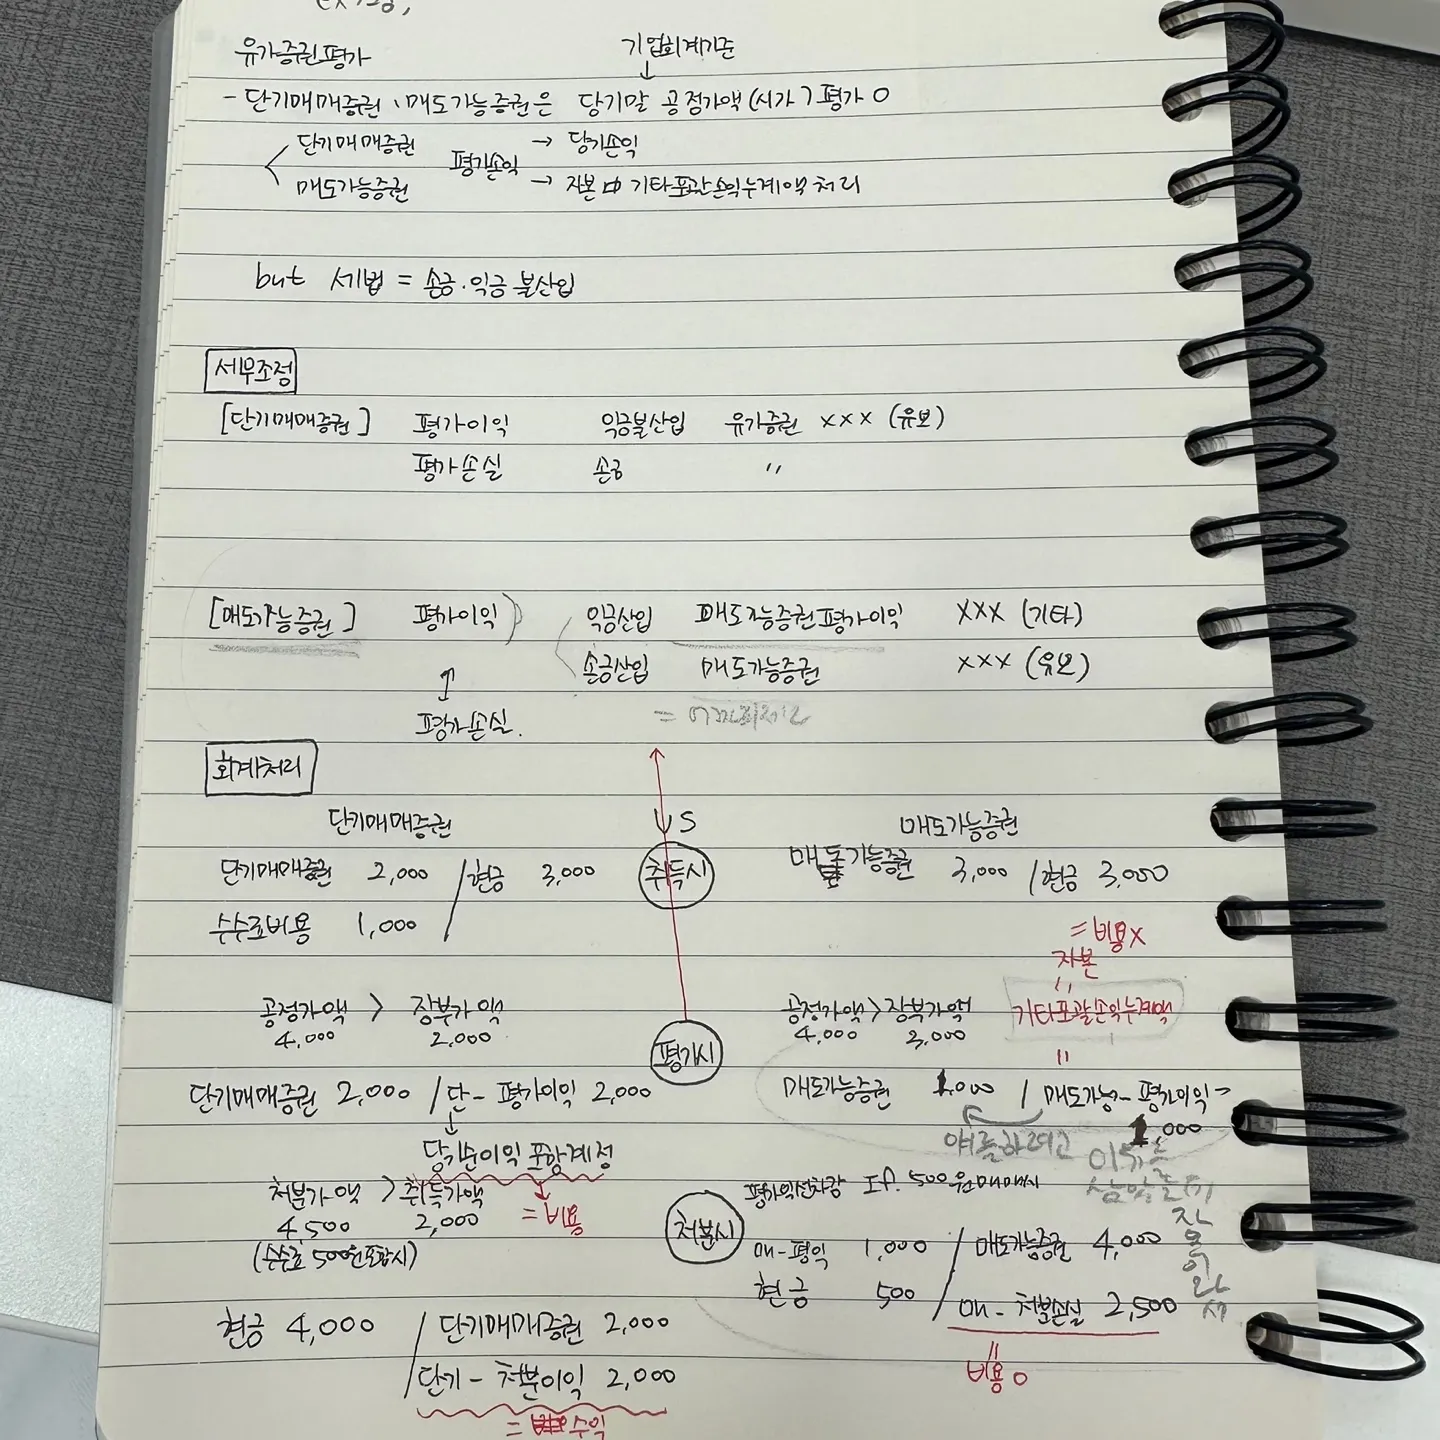 유가증권평가 기업회계기준
↓
- 단기매매증권、매도가능증권은 당기말 공정가액(시가) 평가 O
단기매매증권 평가손익 → 당기손익
매도가능증권 → 자본 中 기타포괄손익누계액 처리
but 세법 = 손금·익금 불산입
세무조정
[단기매매증권] 평가이익 익금불산입 유가증권 ××× (유보)
평가손실 손금 〃
[매도가능증권] 평가이익 익금산입 매도가능증권평가이익 ××× (기타)
손금산입 매도가능증권 ××× (유보)
평가손실.
회계처리
단기매매증권 VS 매도가능증권
단기매매증권 2,000 / 현금 3,000 취득시 매도가능증권 3,000 / 현금 3,000
수수료비용 1,000
= 비용X
자본
〃
공정가액 > 장부가액 공정가액 > 장부가액 기타포괄손익누계액
4,000 2,000 평가시 4,000 3,000 〃
단기매매증권 2,000 / 단- 평가이익 2,000 매도가능증권 1,000 / 매도가능- 평가이익
↓ 1,000
당기순이익 포함계정 여를하려고 이유는
처분가액 > 취득가액 If. 500원 매매시
4,500 2,000 = 비용 처분시
(수수료 500원 포함시) 매-평익 1,000 / 매도가능증권 4,000
현금 500 / 매- 처분손실 2,500
현금 4,000 / 단기매매증권 2,000
단기- 처분이익 2,000 〃
비용 O
= 수익